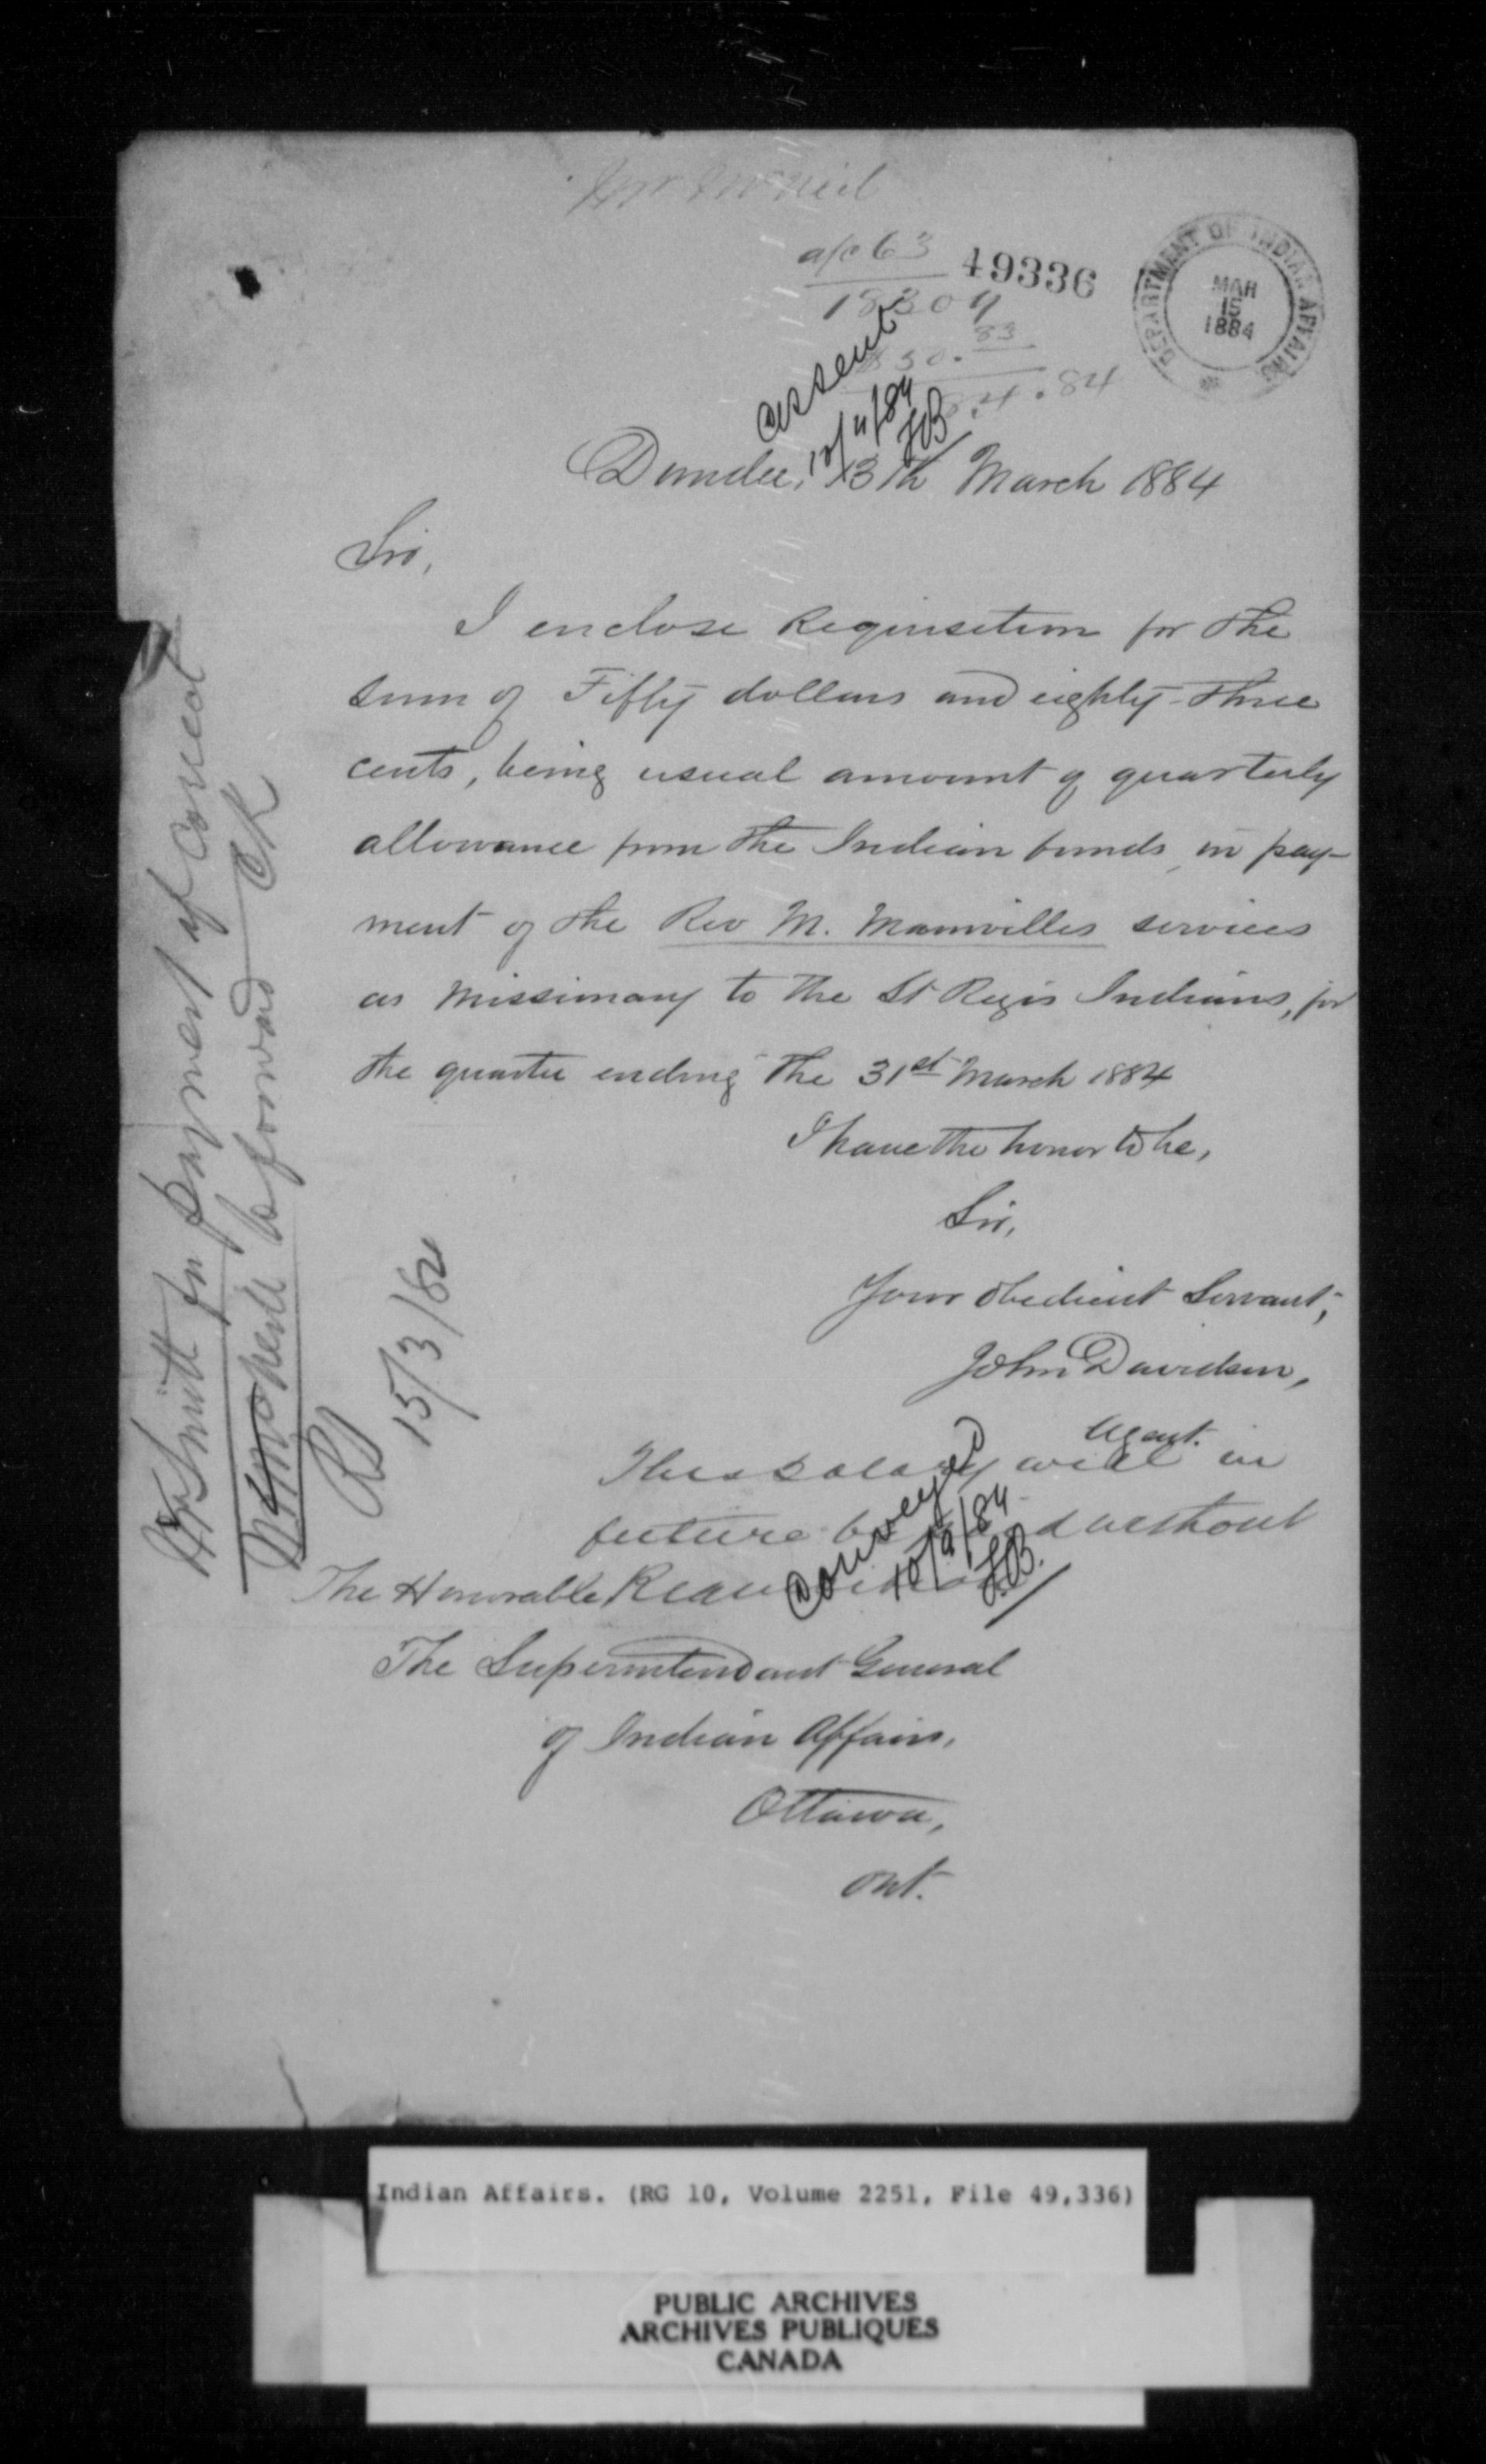 Mr McNeil
a/c 63
49336
18307
DEPARTMENT OF INDIAN AFFAIRS
MAR
15
1884
$50.83
8.4.84
assent
HB
Dundee, 13th March 1884
Sir,
I enclose Requisition for the
sum of Fifty dollars and eighty-three
cents, being usual amount of quarterly
allowance from the Indian funds, in pay-
ment of the Rev M. Mainvilles services
as Missionary to the St Regis Indians, for
the quarter ending the 31st March 1884
I have the honor to be,
Sir,
Your obedient Servant,
John Davidson,
Agent.
This salary will in
future be d without
Conveyed
10/9/84
HB.
The Honorable
The Superintendant General
of Indian Affairs,
Ottawa,
Ont.
Mr Smith for payment if correct
to forward
15/3/84
Indian Affairs. (RG 10, Volume 2251, File 49,336)
PUBLIC ARCHIVES
ARCHIVES PUBLIQUES
CANADA